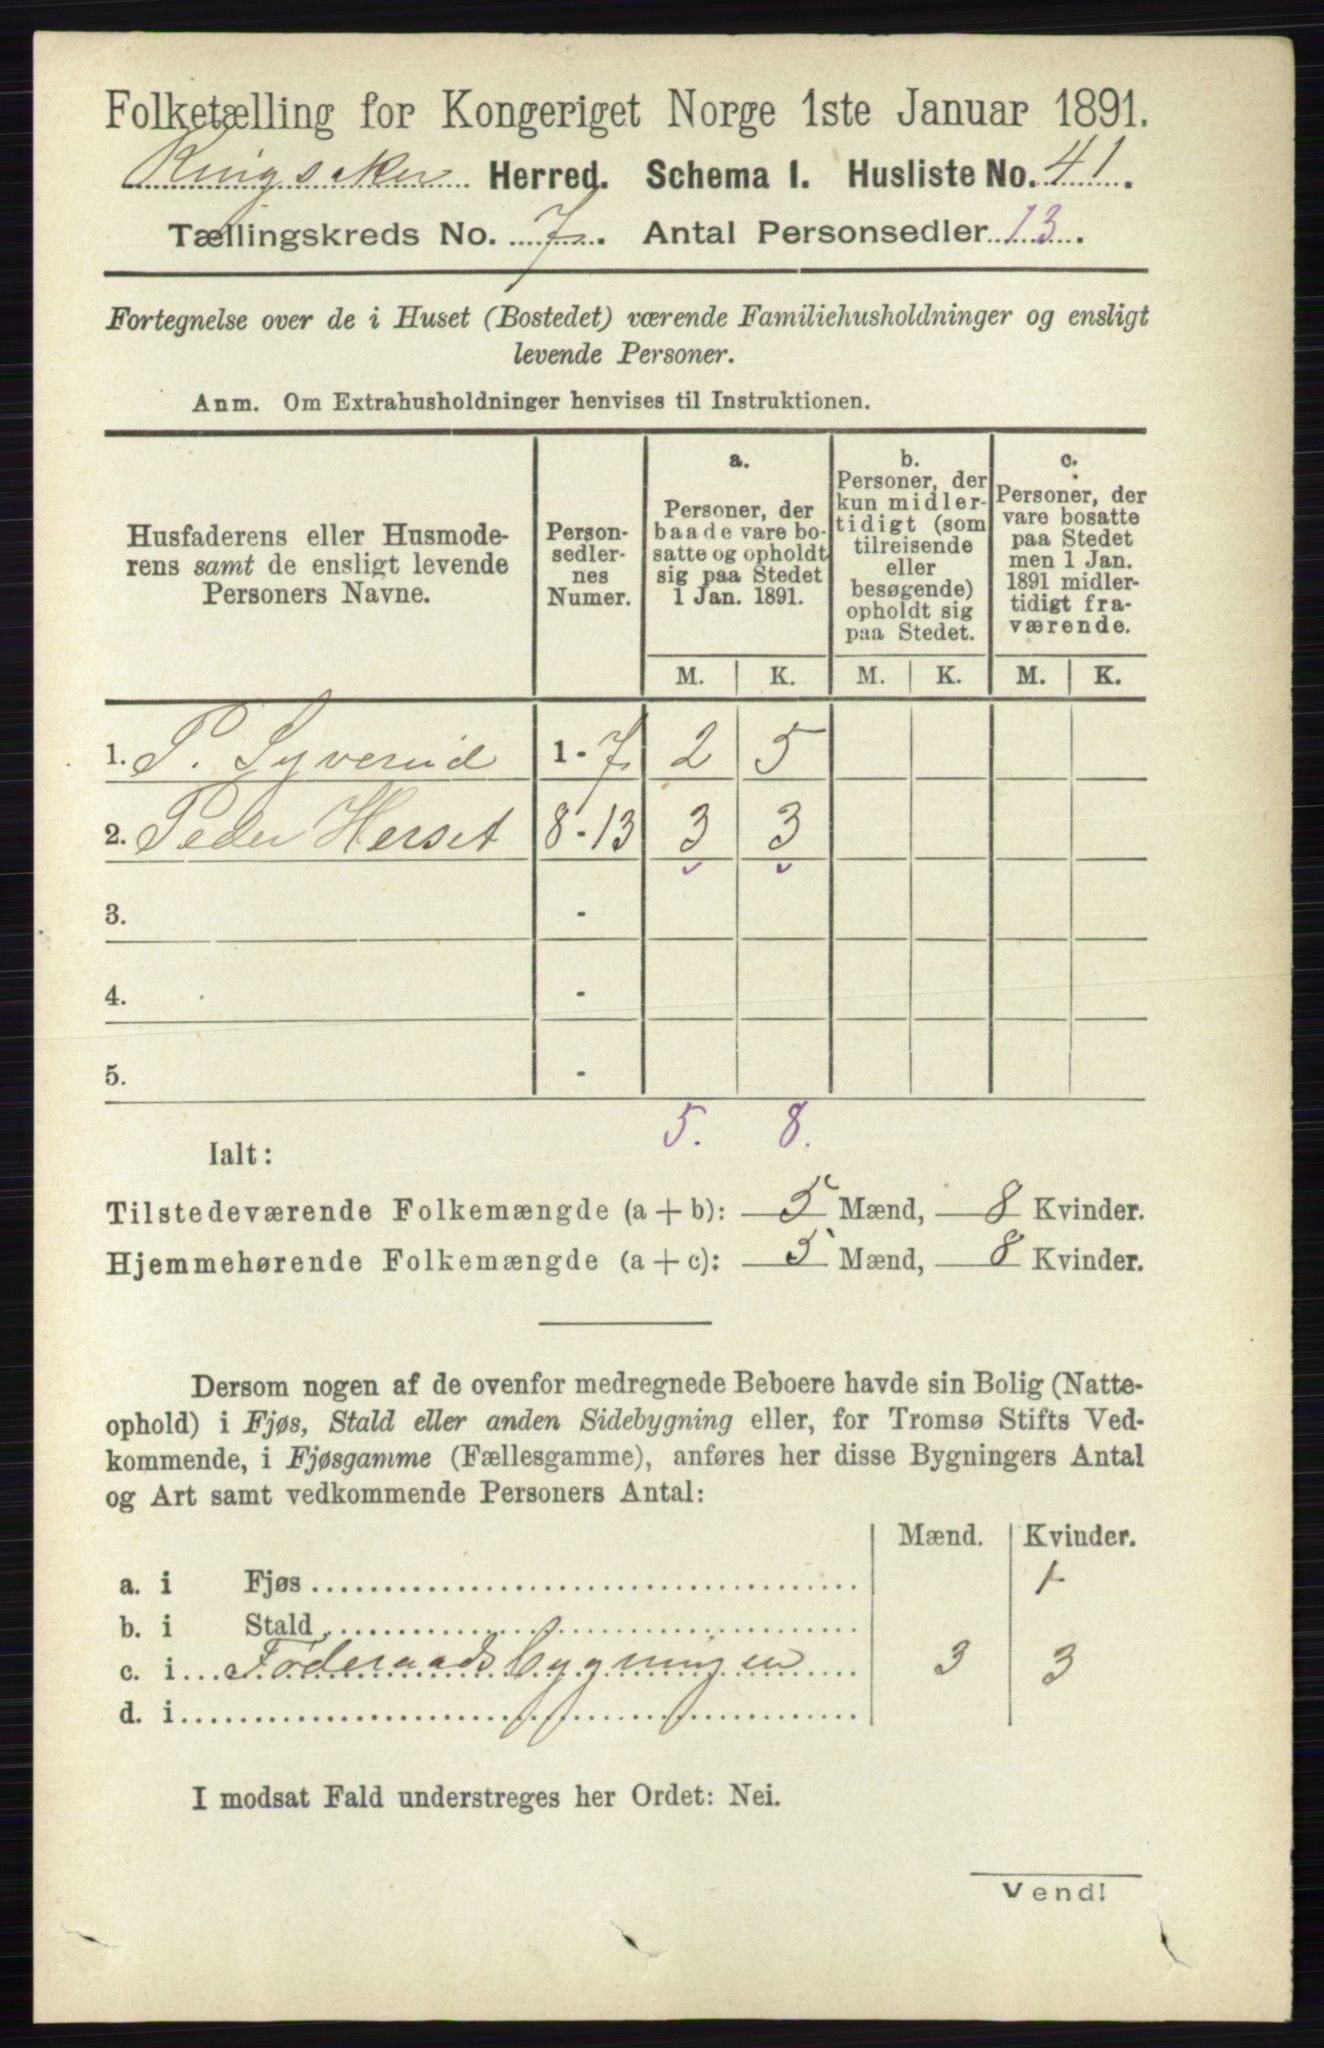 Folketælling for Kongeriget Norge 1ste Januar 1891.
Ringsaker Herred. Schema I. Husliste No. 41.
Tællingskreds No. 7. Antal Personsedler 13.
Fortegnelse over de i Huset (Bostedet) værende Familiehusholdninger og ensligt
levende Personer.
Anm. Om Extrahusholdninger henvises til Instruktionen.
Husfaderens eller Husmode-
rens samt de ensligt levende
Personers Navne.
Person-
sedler-
nes
Numer.
a.
Personer, der
baade vare bo-
satte og opholdt
sig paa Stedet
1 Jan. 1891.
b.
Personer, der
kun midler-
tidigt (som
tilreisende
eller
besøgende)
opholdt sig
paa Stedet.
c.
Personer, der
vare bosatte
paa Stedet
men 1 Jan.
1891 midler-
tidigt fra-
værende.
M. K. M. K. M. K.
1. P. Syverud 1 - 7 2 5
2. Peder Herset 8 - 13 3 3
3. -
4. -
5. -
5. 8.
Ialt:
Tilstedeværende Folkemængde (a + b): 5 Mænd, 8 Kvinder.
Hjemmehørende Folkemængde (a + c): 5 Mænd, 8 Kvinder.
Dersom nogen af de ovenfor medregnede Beboere havde sin Bolig (Natte-
ophold) i Fjøs, Stald eller anden Sidebygning eller, for Tromsø Stifts Ved-
kommende, i Fjøsgamme (Fællesgamme), anføres her disse Bygningers Antal
og Art samt vedkommende Personers Antal:
Mænd. Kvinder.
a. i Fjøs 1
b. i Stald
c. i Føderaadsbygningen 3 3
d. i
I modsat Fald understreges her Ordet: Nei.
Vend!